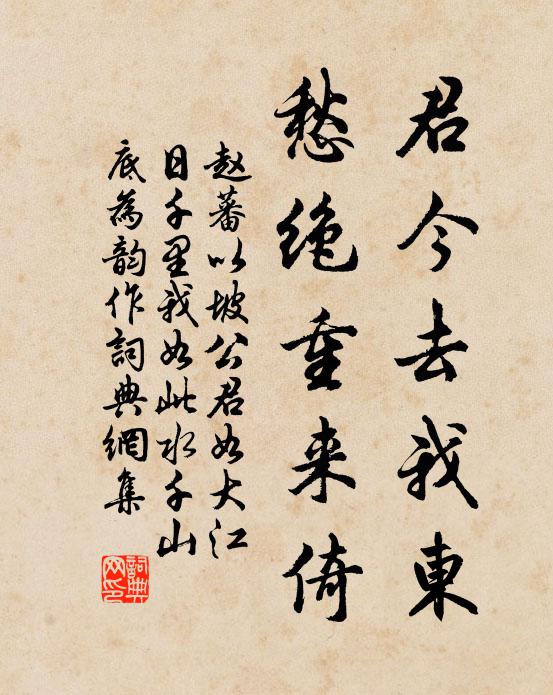 君今去我東
愁绝重来倚
赵蕃以坡公君如大江
日千里我如此水千山
底為韵作詞典網集
詞典
网印